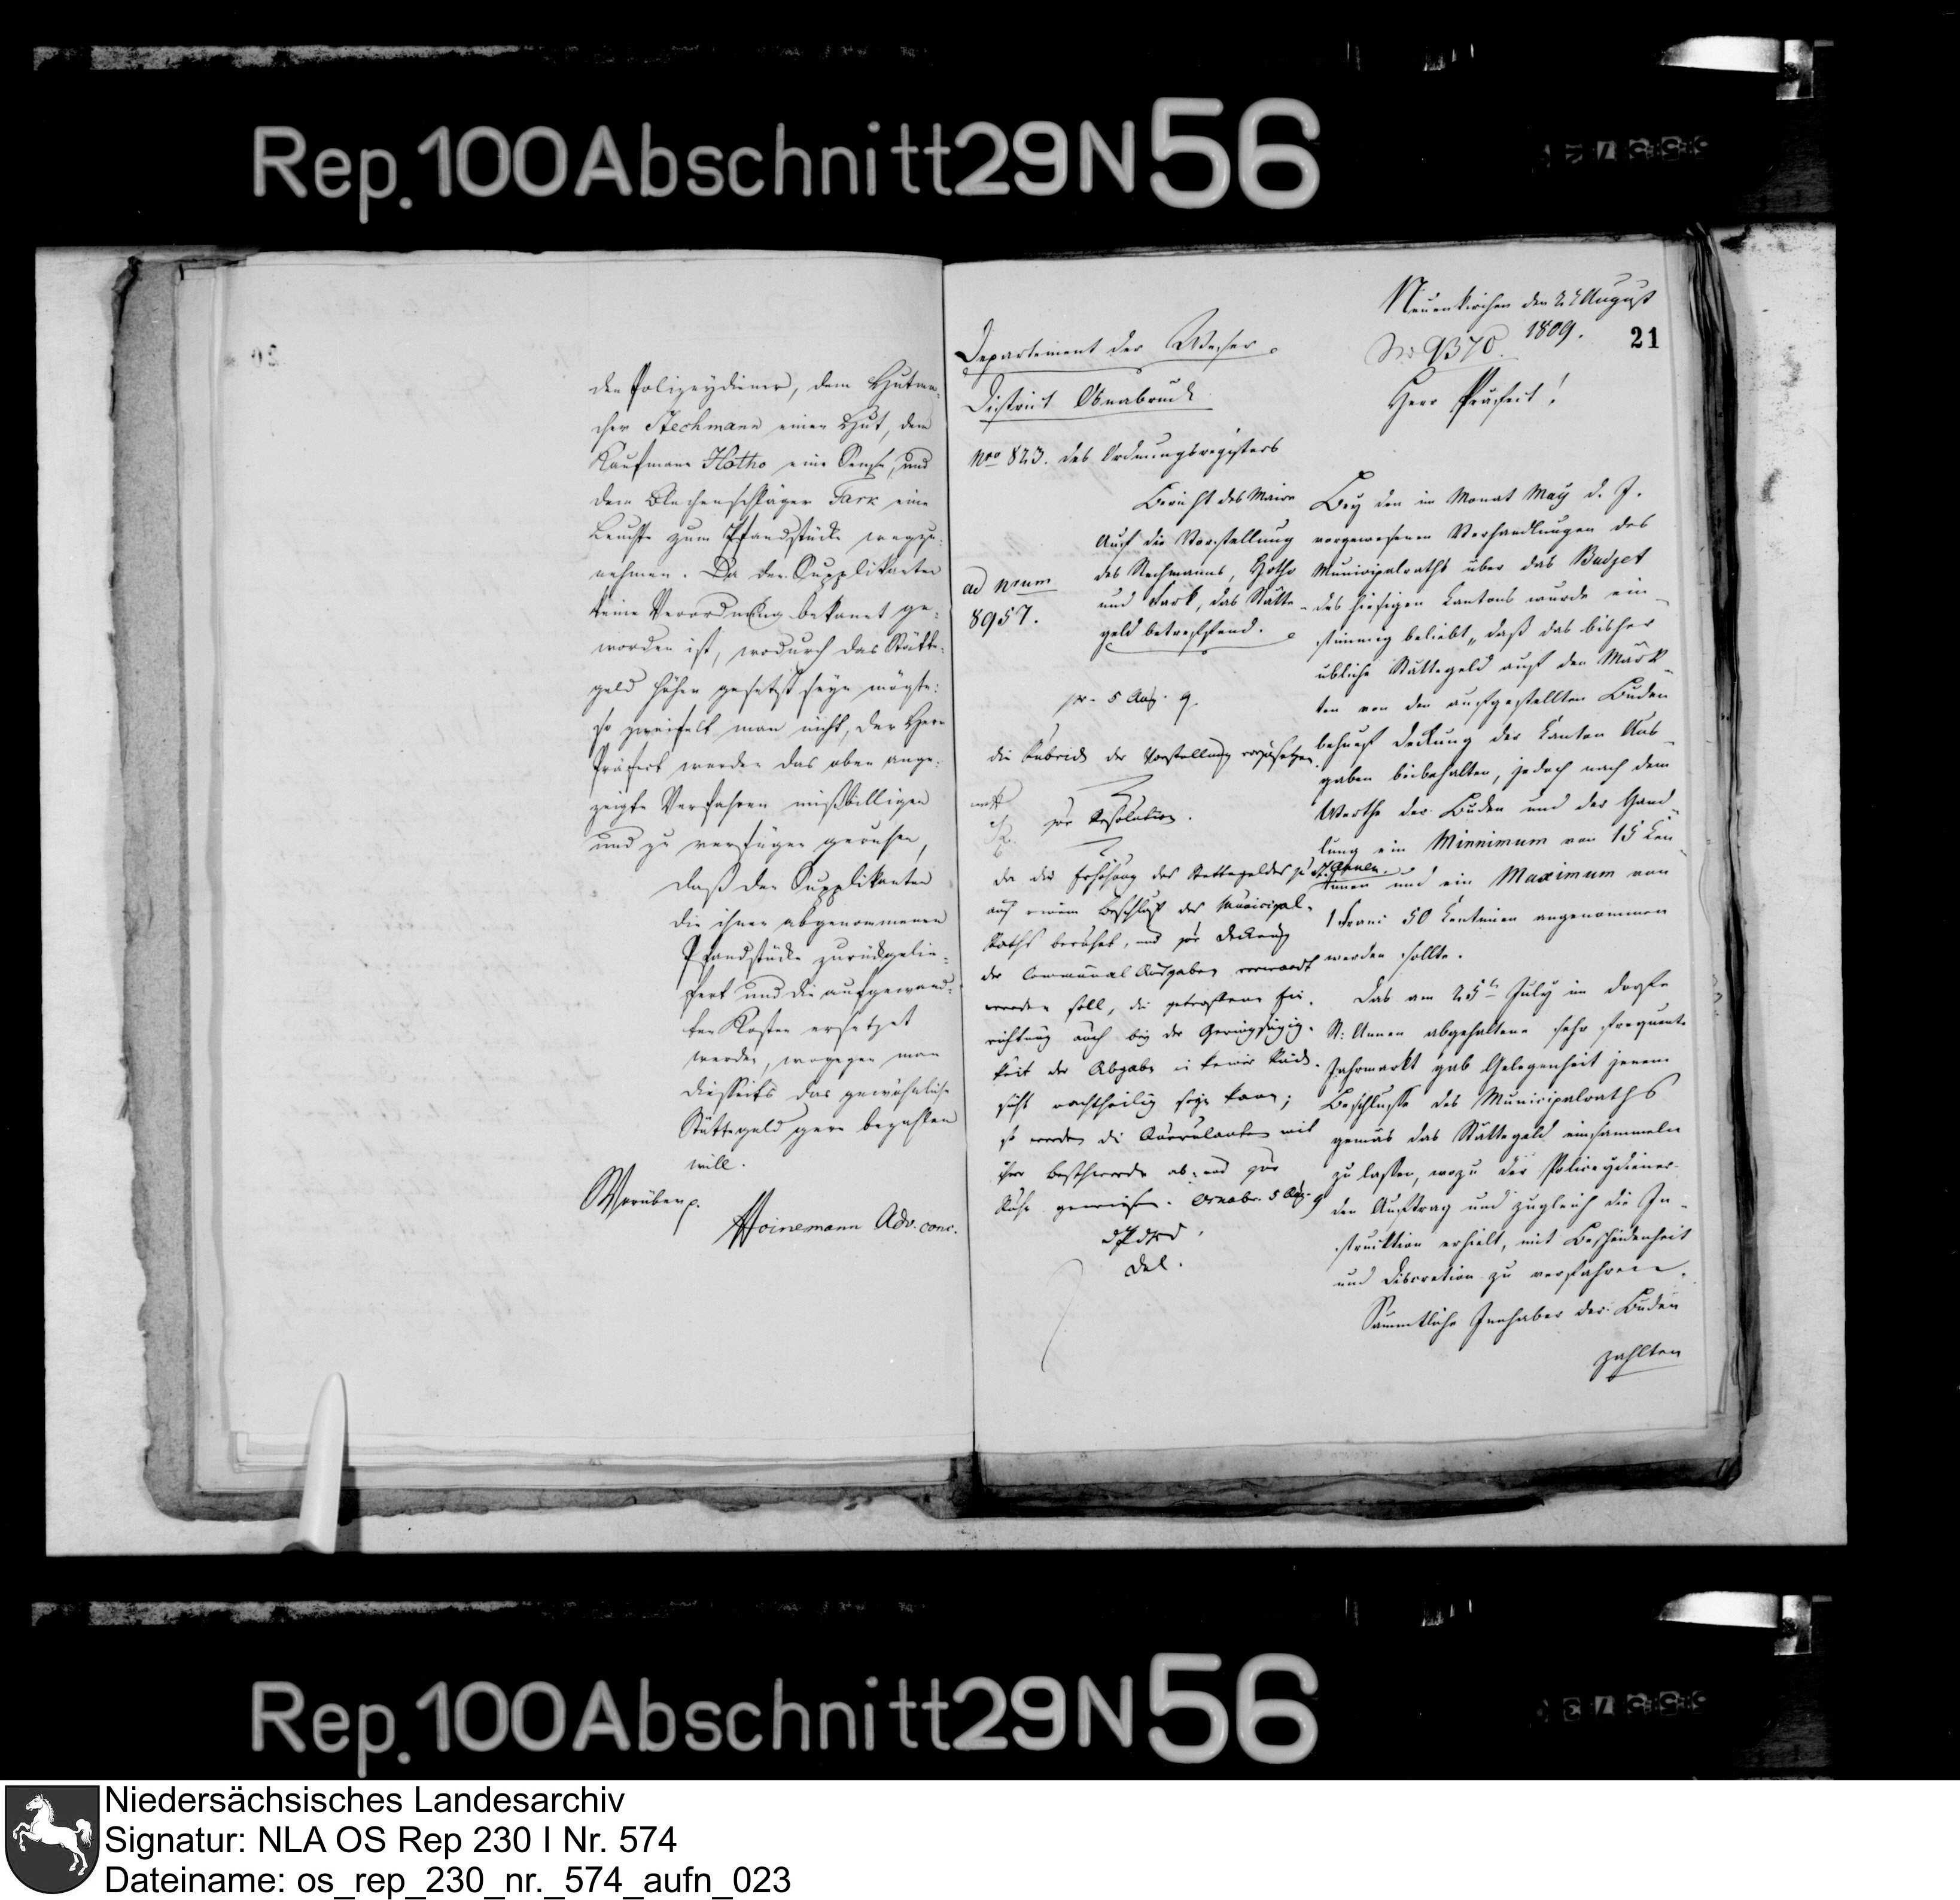 Rep. 100 Abschnitt 29 N 56
den Polizeydiener, dem Hutma¬
cher Stechmann einen Hut, dem
Kaufmann Hotho eine Sense, und
dem Blechenschläger Fark eine
Leuchte zum Pfandstücke wegzu¬
nehmen. Da den Supplikanten
keine Verordnung bekannt ge¬
worden ist, wodurch das Stätte¬
geld höher gesetzt seyn mögte:
so zweifelt man nicht, der Herr
Präfect werden das oben ange¬
zeigte Verfahren mißbilligen
und zu verfügen geruhen,
daß den Supplikanten
die ihnen abgenommenen
Pfandstücke zurückgelie¬
fert und die aufgewand¬
ten Kosten ersetzet
werden, wogegen man
diesseits das gewöhnliche
Stättegeld gern bezahlen
will.
Worüber p.
Heinemann Adv. conc.
Neuenkirchen den August
1809.
No 9370.
21
Departement der Weser
District Osnabrück
Herr Präfect!
Nro 823. des Ordnungsregisters
Bericht des Maire
Auf die Vorstellung
des Stechmanns, Hotho
und Fark, das Stätte¬
geld betreffend.
ad Nrum
8957.
pr. 5 Aug. 9.
die Rubrick der Vorstellung
zur Resolution.
Da die Erhöhung des Stettegeldes zu St. Annen
auf einem Beschluß des Municipal¬
Raths beruhet, und zur Deckung
der Communal Ausgaben verwandt
werden soll, die getroffene Ein¬
richtung auch bey der Geringfügig¬
keit der Abgabe in keiner Rück¬
sicht nachtheilig seyn kann;
so werden die Querulanten mit
ihrer Beschwerde ab- und zur
Ruhe gewiesen. Osnabr. 5 Aug. 9
Bey den im Monat May d. J.
vorgewesenen Verhandlungen des
Municipalraths über das Budjet
des hiesigen Cantons wurde ein¬
stimmig beliebt, daß das bisher
übliche Stättegeld auf den Märk¬
ten von den aufgestellten Buden
behuef Deckung der Canton Aus¬
gaben beibehalten, jedoch nach dem
Werthe der Buden und der Hand¬
lung ein Minnimum von 15 Cen¬
timen und ein Maximum von
1 Franc 50 Centimen angenommen
werden sollte.
Das am 25ten July im Dorfe
St: Annen abgehaltene sehr frequente
Jahrmarkt gab Gelegenheit jenem
Beschlusse des Municipalraths
gemäs das Stättegeld einsammeln
zu lassen, wozu der Policeydiener
den Auftrag und zugleich die In¬
struction erhielt, mit Bescheidenheit
und Discretion zu verfahren.
Sämmtliche Innhaber der Buden
zahlten
Rep. 100 Abschnitt 29 N 56
Niedersächsisches Landesarchiv
Signatur: NLA OS Rep 230 I Nr. 574
Dateiname: os_rep_230_nr._574_aufn_023